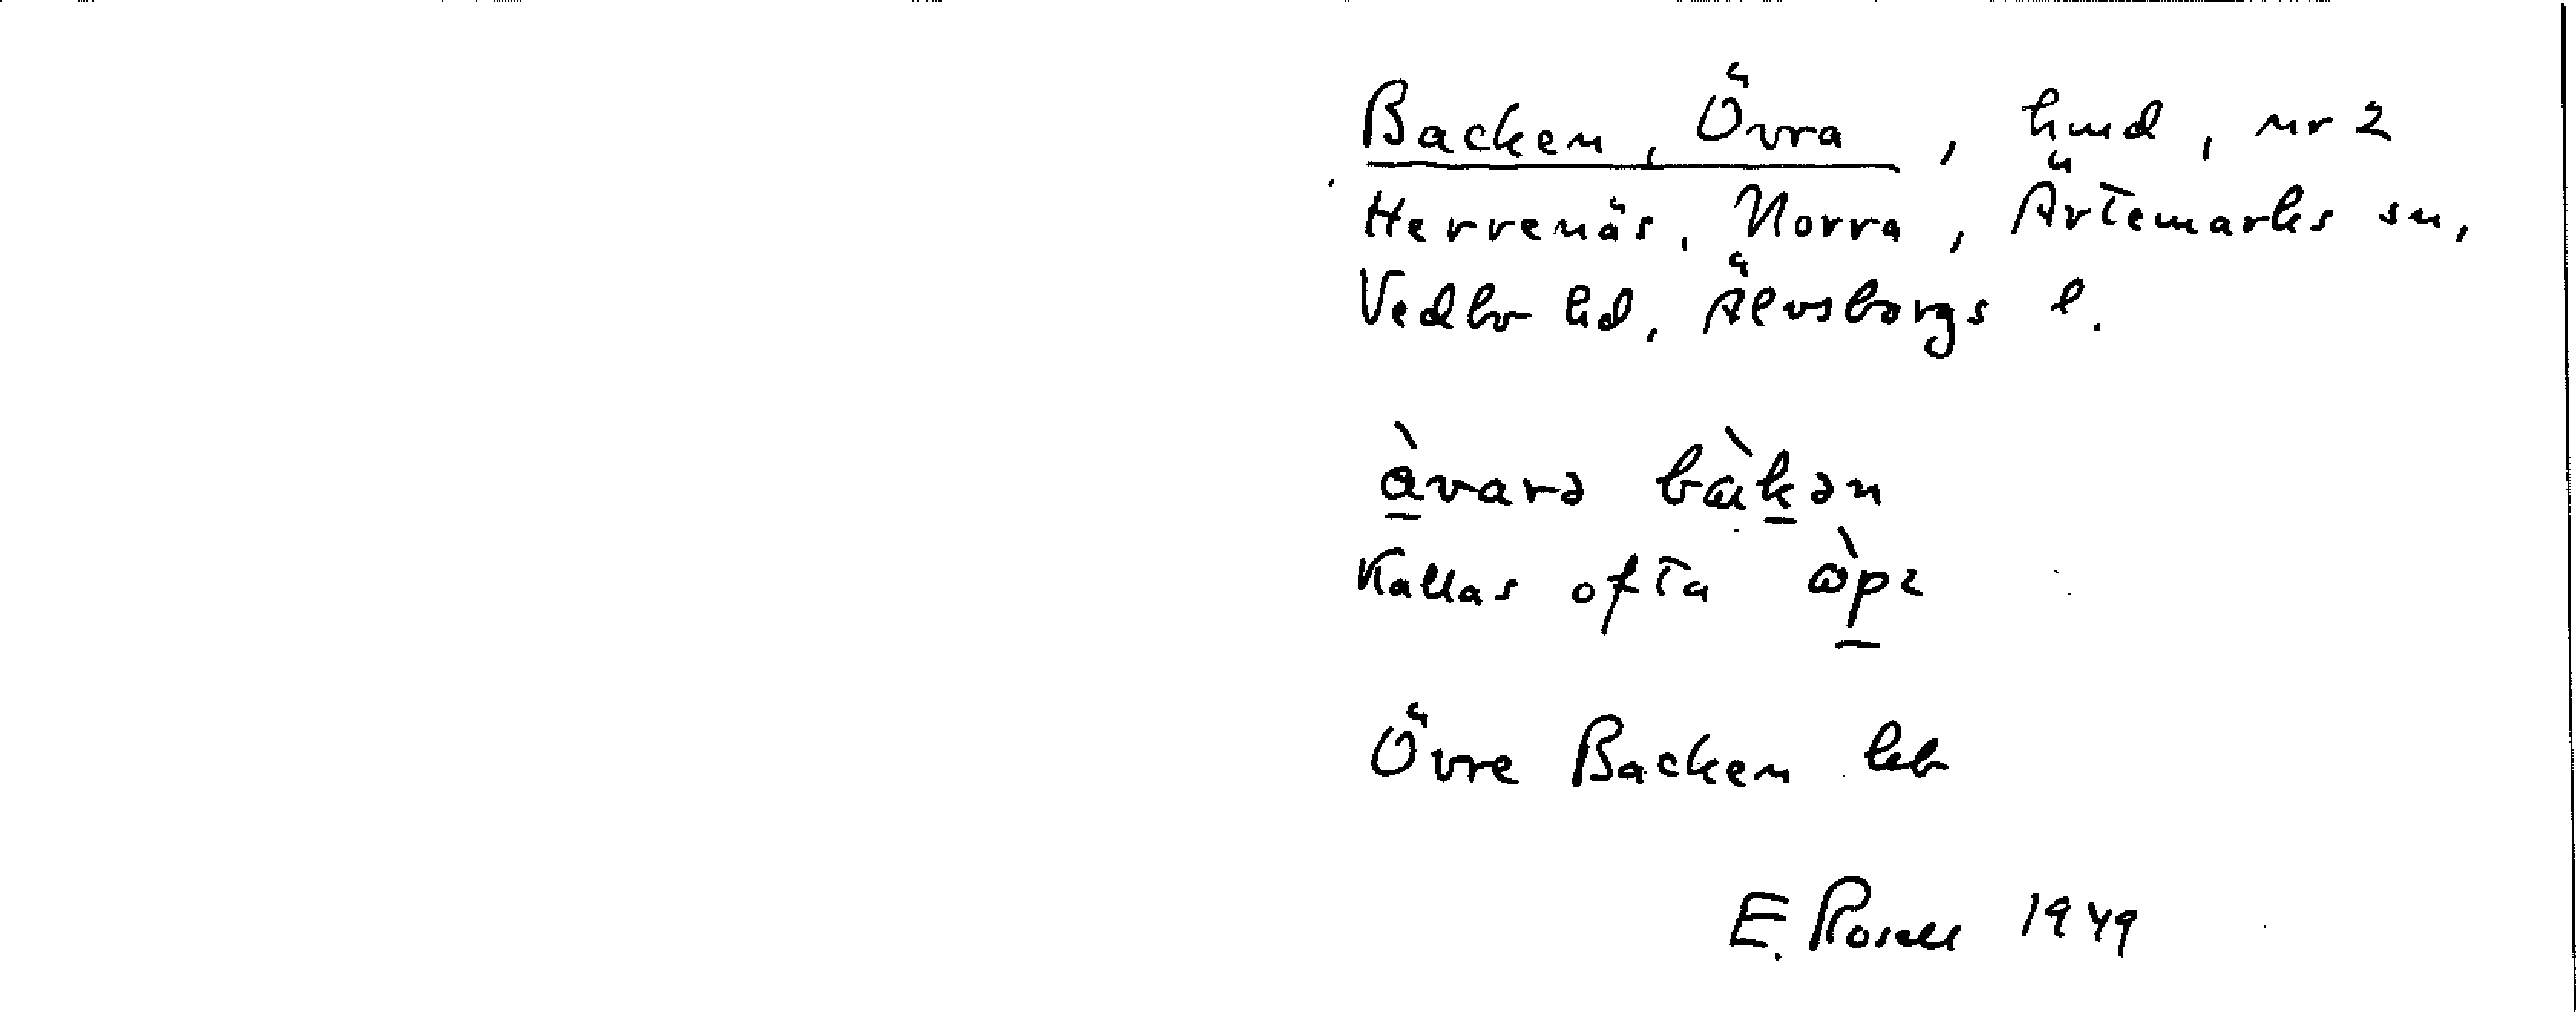 Backen, Övra, hmd, nr 2
Herrenäs, Norra, Ärtemarks sn,
Vedbo hd, Älvsborgs l.
àvarə bàkən
Kallas ofta
Övre Backen
E. Rosell 1949